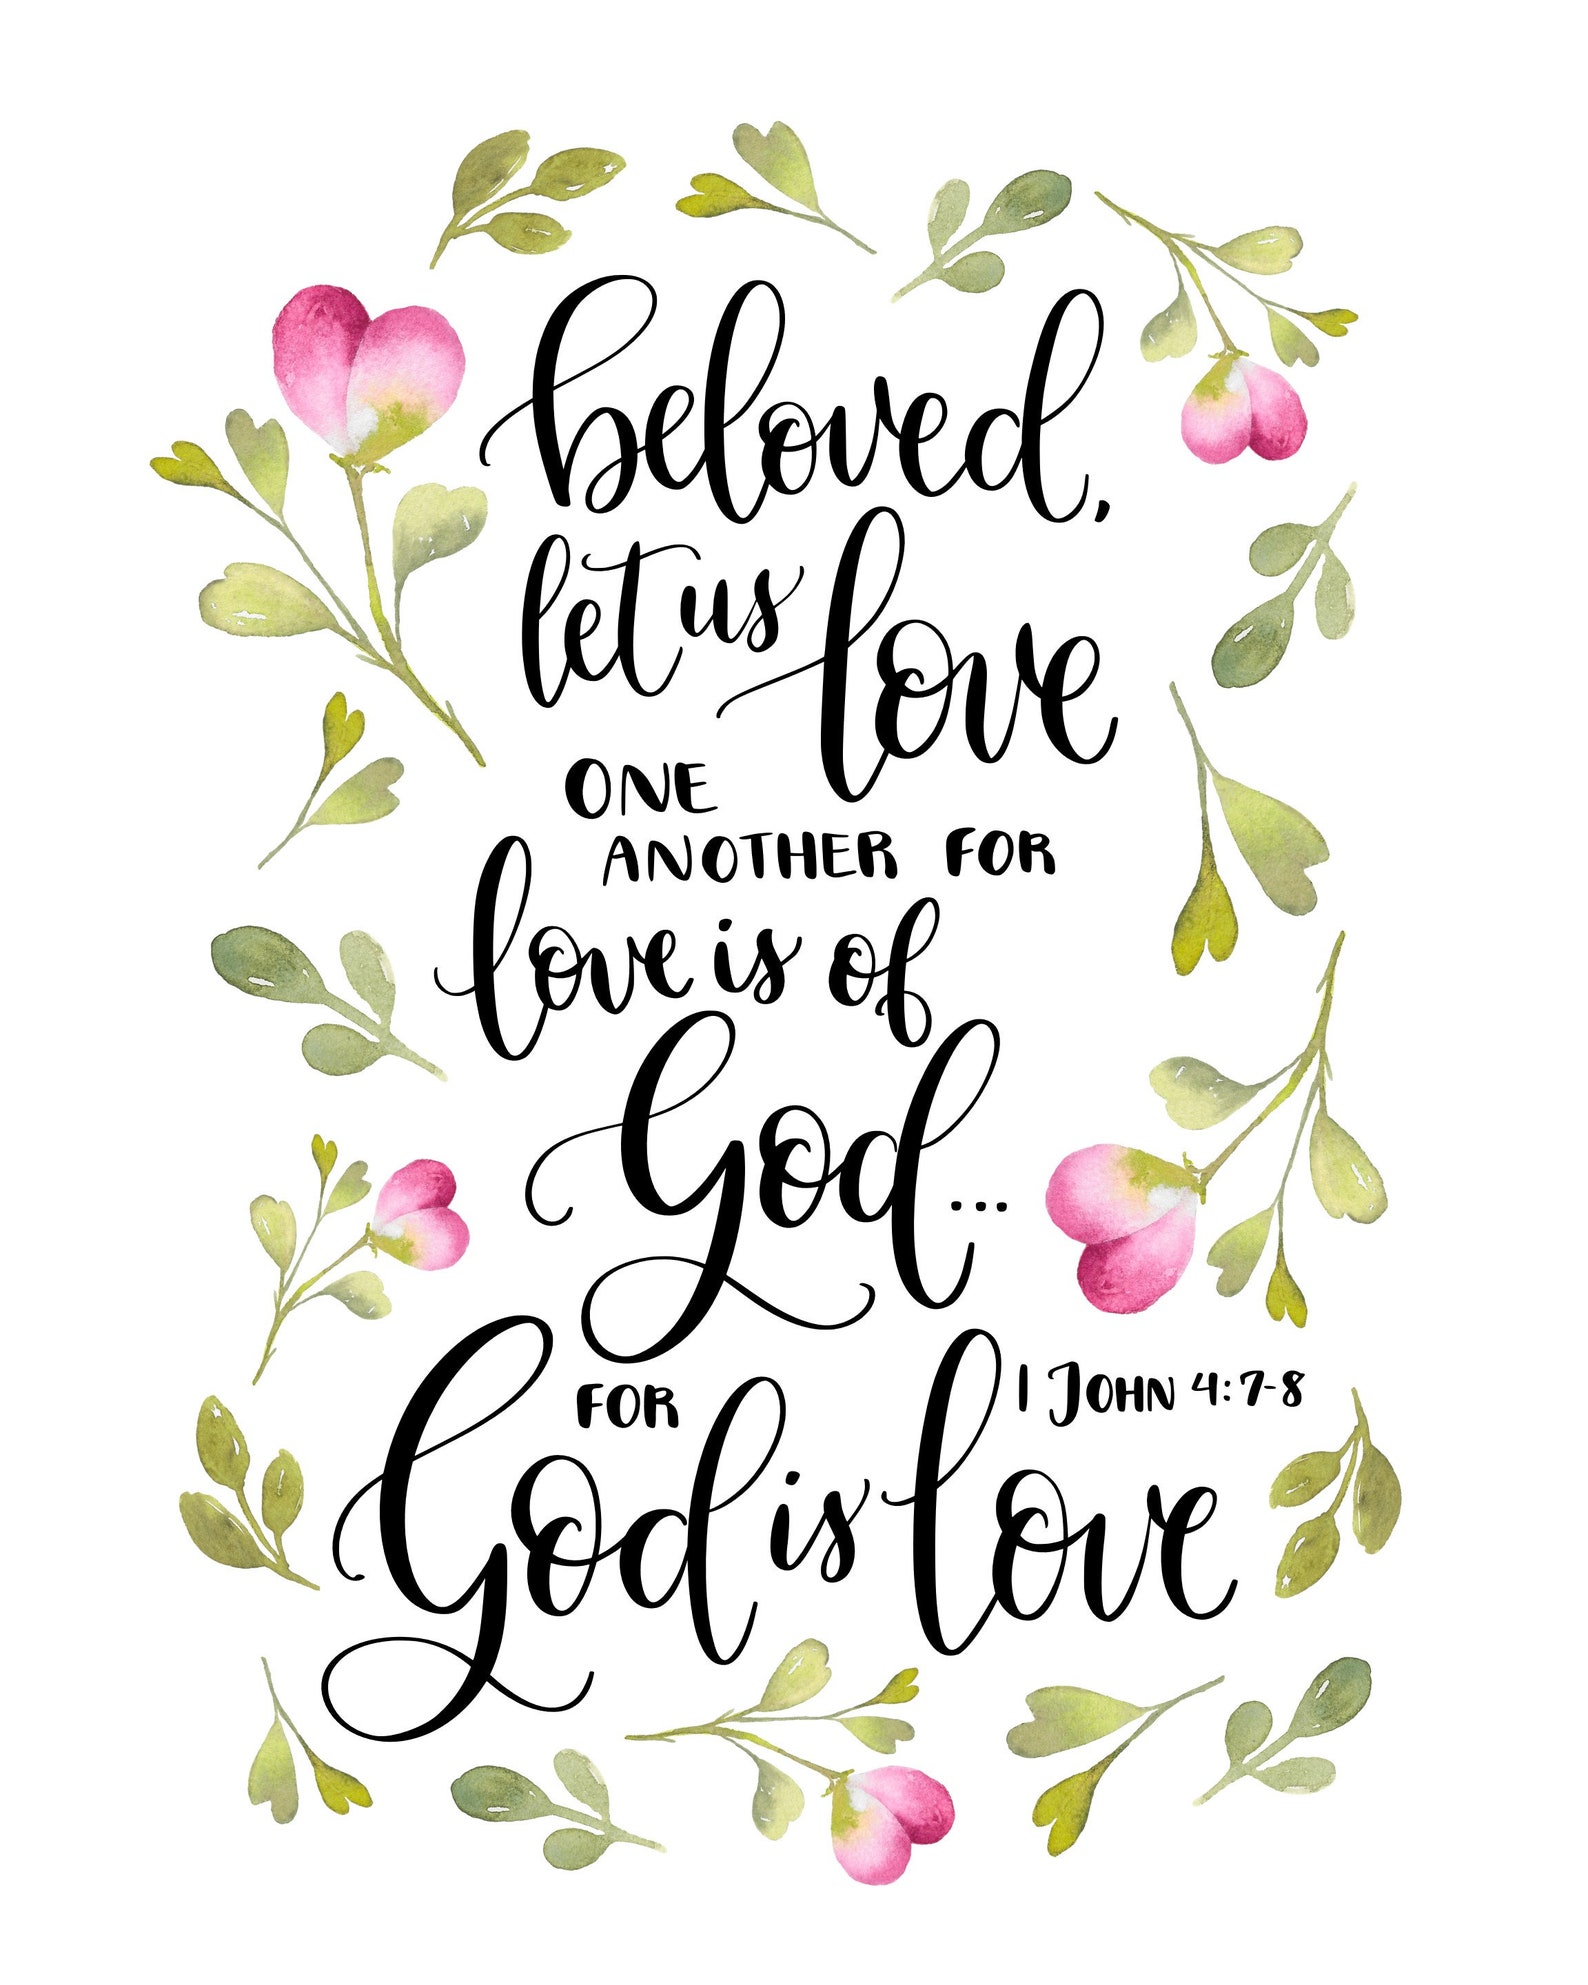 beloved,
let us love
ONE
ANOTHER FOR
love is of
God...
FOR
1 JOHN 4:7-8
God is love